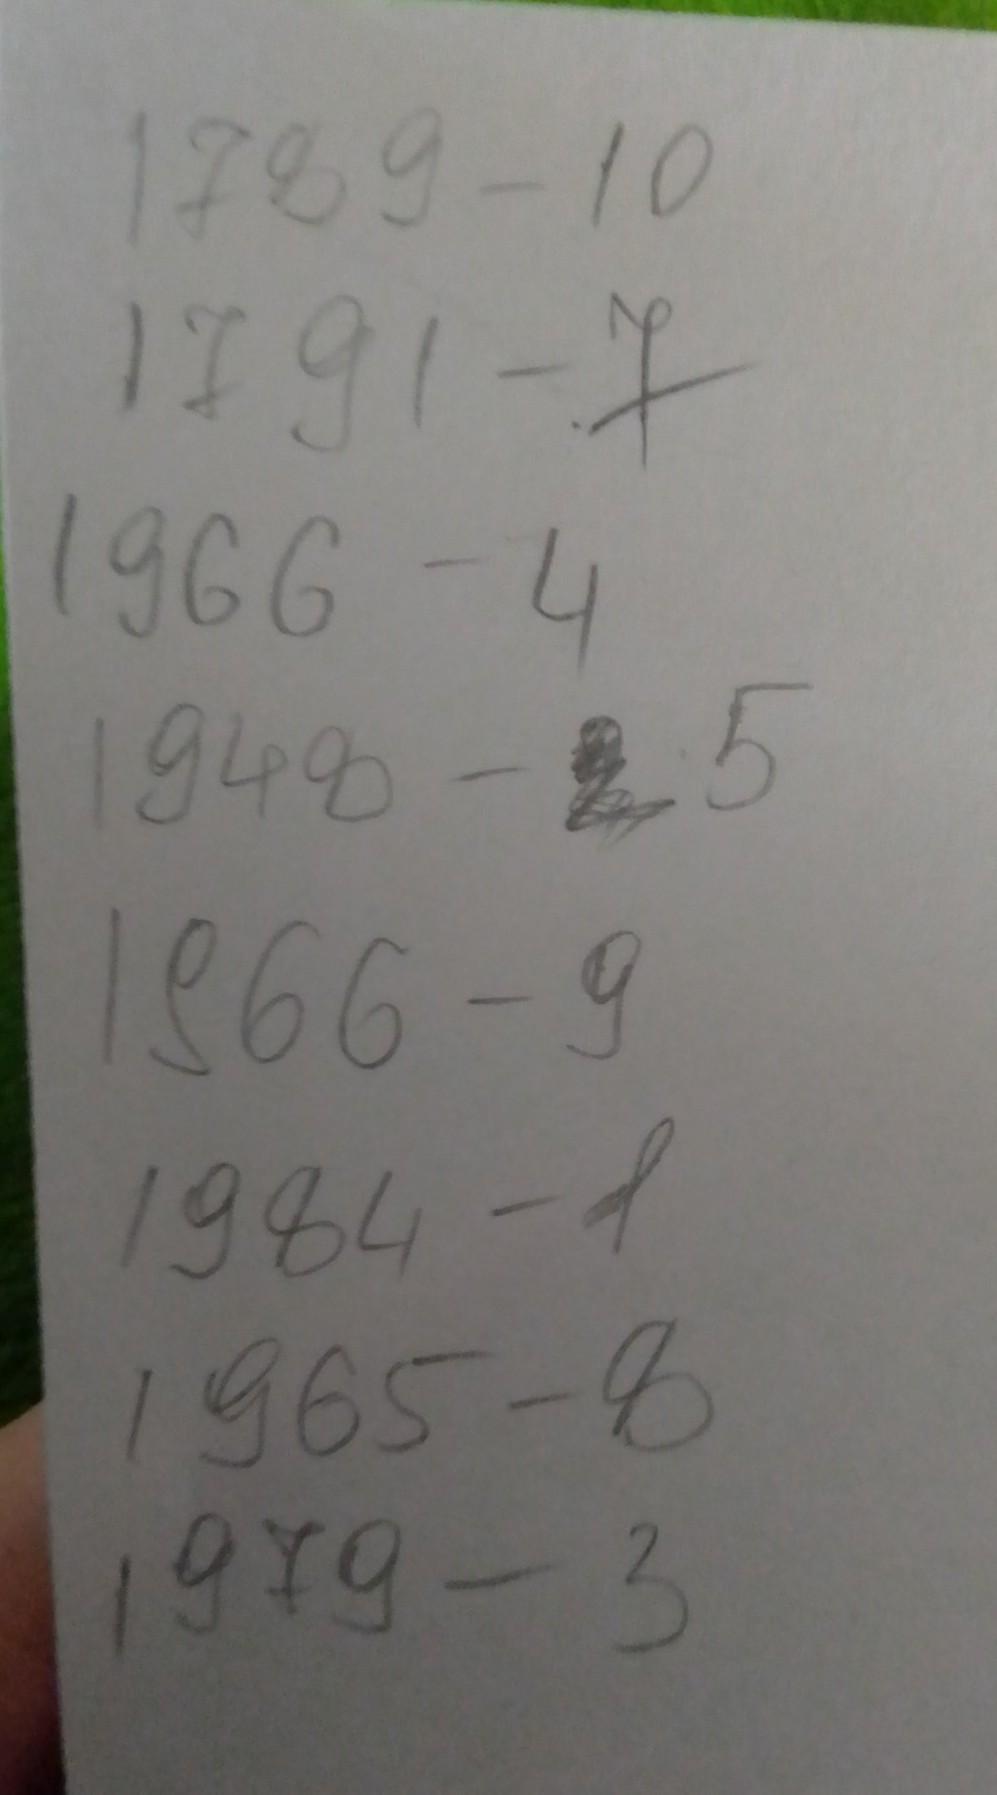 1789 – 10
1791 – 7
1966 – 4
1948 – 5
1966 – 9
1984 – 1
1965 – 8
1979 – 3